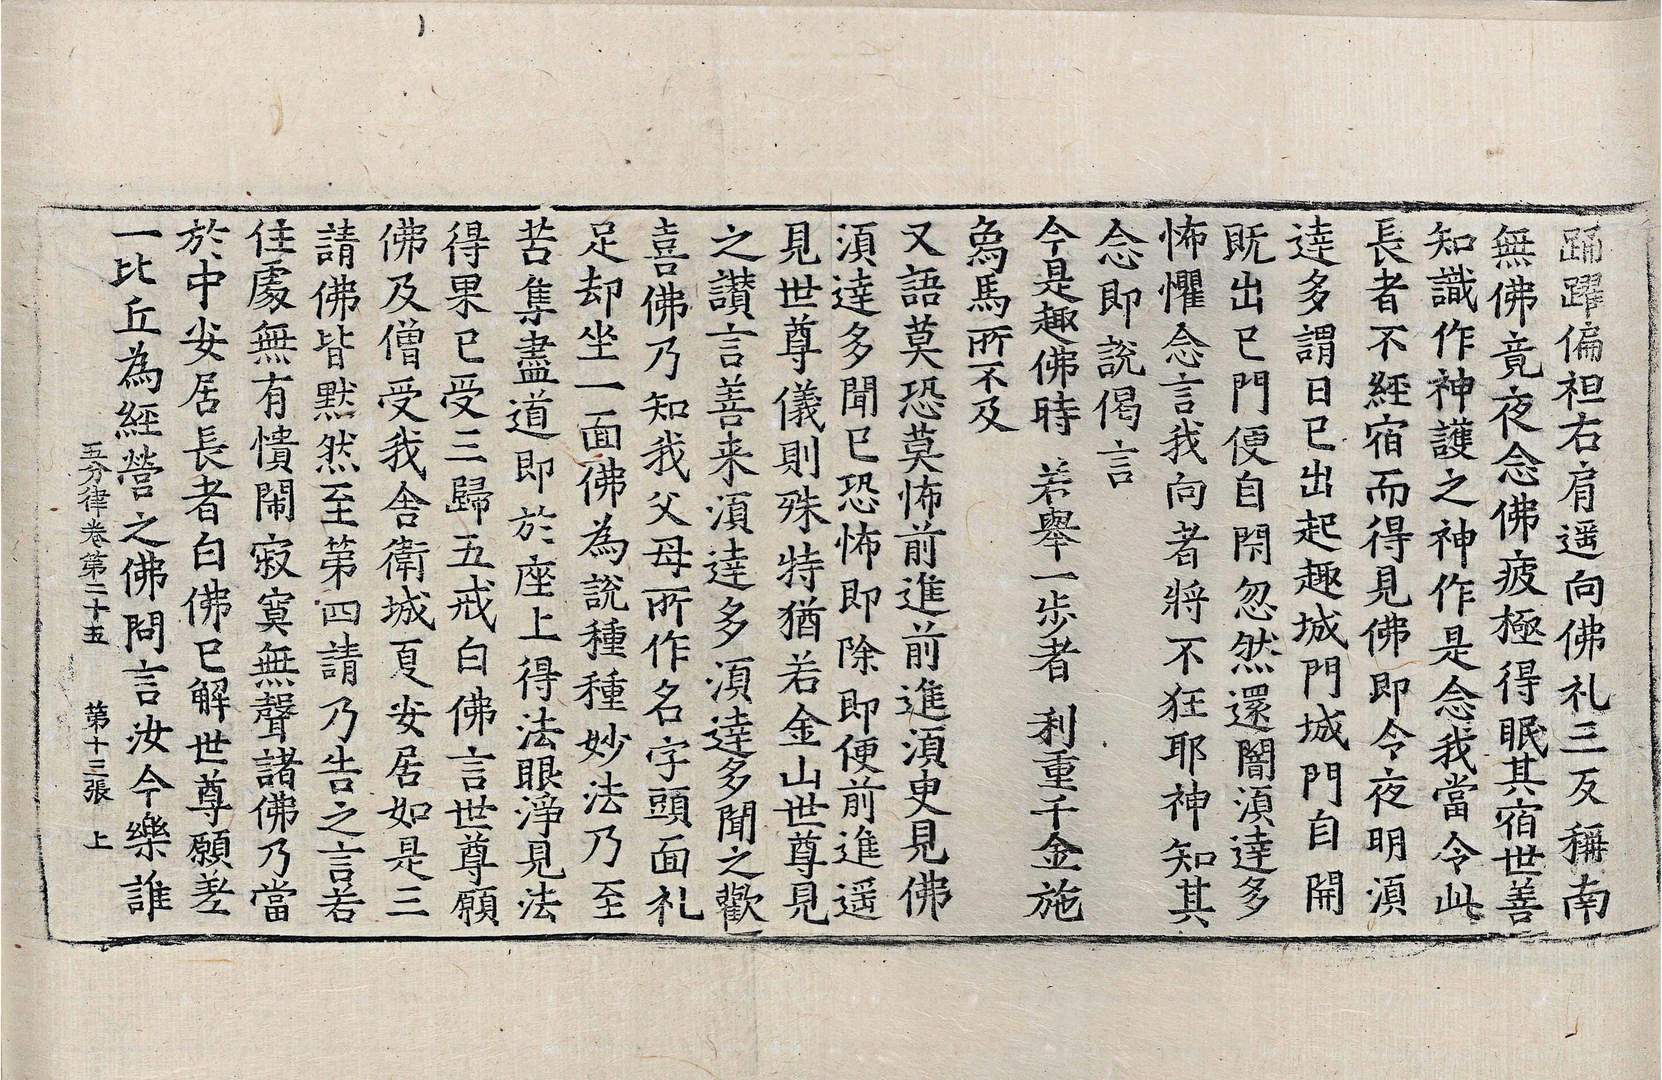 踊躍偏袒右肩遥向佛礼三反稱南
無佛竟夜念佛疲極得眠其宿世善
知識作神護之神作是念我當令此
長者不經宿而得見佛即令夜明湏
逹多謂日已出起趣城門城門自開
既出已門便自閇忽然還闇湏逹多
怖懼念言我向者将不狂耶神知其
念即說偈言
今是趣佛時　若舉一步者　利重千金施
象馬所不及
又語莫恐莫怖前進前進湏臾見佛
湏逹多聞已恐怖即除即便前進遥
見世尊儀則殊特猶若金山世尊見
之讃言善来湏逹多湏逹多聞之歡
喜佛乃知我父母所作名字頭面礼
足却坐一面佛為說種種妙法乃至
苦集盡道即於座上得法眼淨見法
得果已受三歸五戒白佛言世尊願
佛及僧受我舍衛城夏安居如是三
請佛皆默然至第四請乃告之言若
住處無有憒閙寂寞無聲諸佛乃當
於中安居長者白佛已解世尊願差
一比丘為經營之佛問言汝今樂誰
五分律卷第二十五　第十三張　上